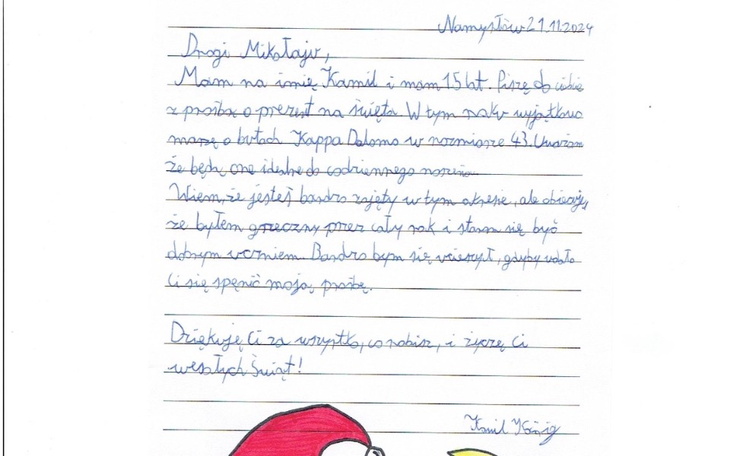 Namysłów 21.11.2024
Drogi Mikołaju,
Mam na imię Kamil i mam 15 lat. Piszę do ciebie
z prośbą o prezent na święta. W tym roku wyjątkowo
marzę o butach Kappa Dalomo w rozmiarze 43. Uważam
że będą one idealne do codziennego noszenia
Wiem, że jesteś bardzo zajęty w tym okresie, ale obiecuję,
że byłem grzeczny przez cały rok i staram się być
dobrym uczniem. Bardzo bym się ucieszył, gdyby udało
Ci się spełnić moją prośbę.
Dziękuję Ci za wszystko, co robisz, i życzę Ci
wesołych Świąt!
Kamil König